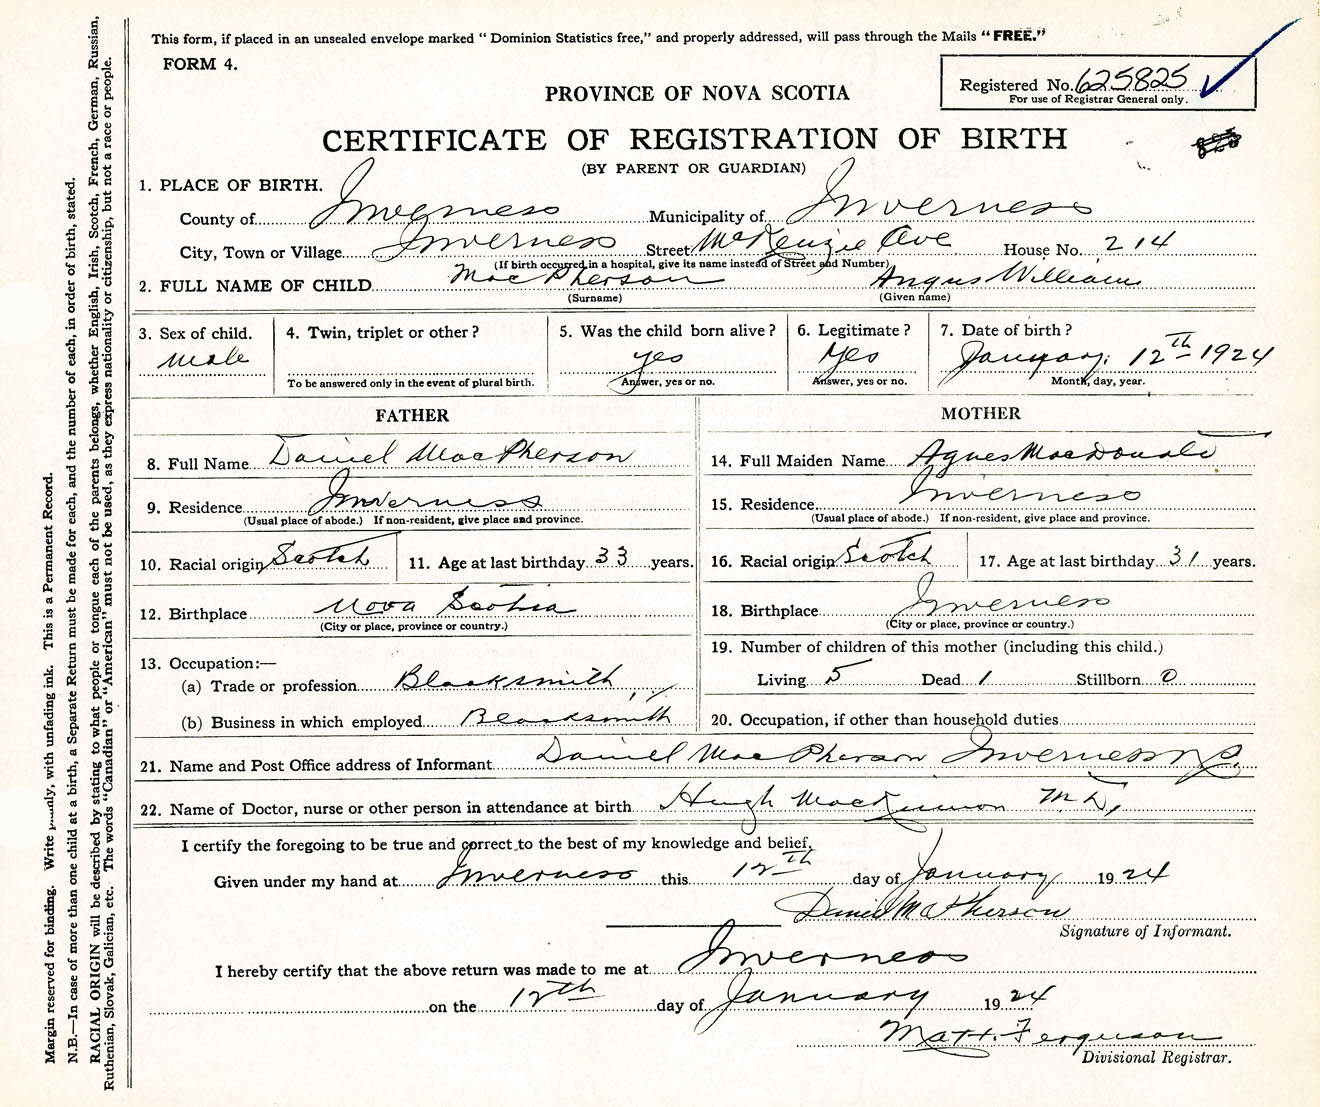 This form, if placed in an unsealed envelope marked “ Dominion Statistics free,” and properly addressed, will pass through the Mails “ FREE.”
FORM 4.
Registered No. 625825
For use of Registrar General only.
PROVINCE OF NOVA SCOTIA
CERTIFICATE OF REGISTRATION OF BIRTH
(BY PARENT OR GUARDIAN)
1. PLACE OF BIRTH.
County of Inverness Municipality of Inverness
City, Town or Village Inverness Street McKenzie Ave House No. 214
(If birth occurred in a hospital, give its name instead of Street and Number)
2. FULL NAME OF CHILD MacPherson Angus William
(Surname) (Given name)
3. Sex of child. 4. Twin, triplet or other? 5. Was the child born alive? 6. Legitimate? 7. Date of birth?
male yes Yes January 12th 1924
To be answered only in the event of plural birth. Answer, yes or no. Answer, yes or no. Month, day, year.
FATHER MOTHER
8. Full Name Daniel MacPherson 14. Full Maiden Name Agnes MacDonald
9. Residence Inverness 15. Residence Inverness
(Usual place of abode.) If non-resident, give place and province. (Usual place of abode.) If non-resident, give place and province.
10. Racial origin Scotch 11. Age at last birthday 33 years. 16. Racial origin Scotch 17. Age at last birthday 31 years.
12. Birthplace Nova Scotia 18. Birthplace Inverness
(City or place, province or country.) (City or place, province or country.)
13. Occupation:— 19. Number of children of this mother (including this child.)
(a) Trade or profession Blacksmith Living 5 Dead 1 Stillborn 0
(b) Business in which employed Blacksmith 20. Occupation, if other than household duties
21. Name and Post Office address of Informant Daniel MacPherson Inverness N.S.
22. Name of Doctor, nurse or other person in attendance at birth Hugh MacKinnon M.D,
I certify the foregoing to be true and correct to the best of my knowledge and belief.
Given under my hand at Inverness this 12th day of January 1924
Daniel McPherson
Signature of Informant.
I hereby certify that the above return was made to me at Inverness
on the 12th day of January 1924
Matt. Ferguson
Divisional Registrar.
Margin reserved for binding. Write with unfading ink. This is a Permanent Record.
N.B.—In case of more than one child at a birth, a Separate Return must be made for each, and the number of each, in order of birth, stated.
RACIAL ORIGIN will be described by stating to what people or tongue each of the parents belongs, whether English, Irish, Scotch, French, German, Russian,
Ruthenian, Slovak, Galician, etc. The words “Canadian” or “American” must not be used, as they express nationality or citizenship, but not a race or people.